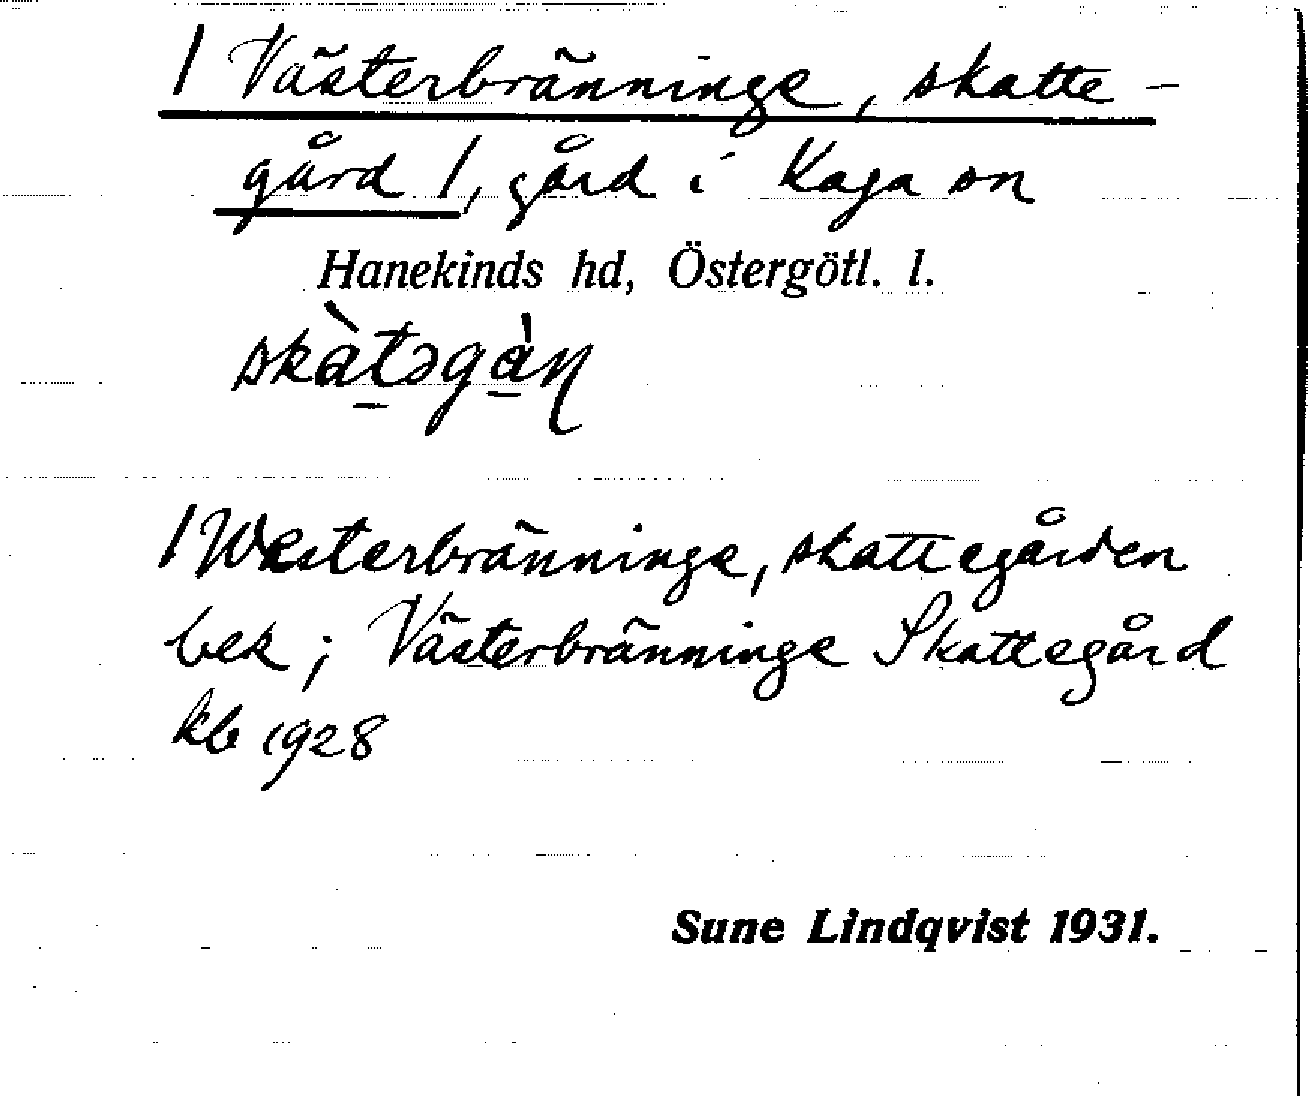 / Västerbränninge, skatte-
gård /, gård i Kaga sn
Hanekinds hd, Östergötl. l.
skàt̠əgà̠ɳ
/ Westerbränninge, skattegården
bek; Västerbränninge Skattegård
kb 1928
Sune Lindqvist 1931.